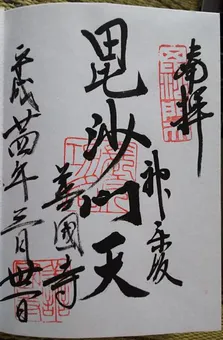 奉拝
神楽坂
毘沙門天
善國寺
平成廿四年三月廿一日